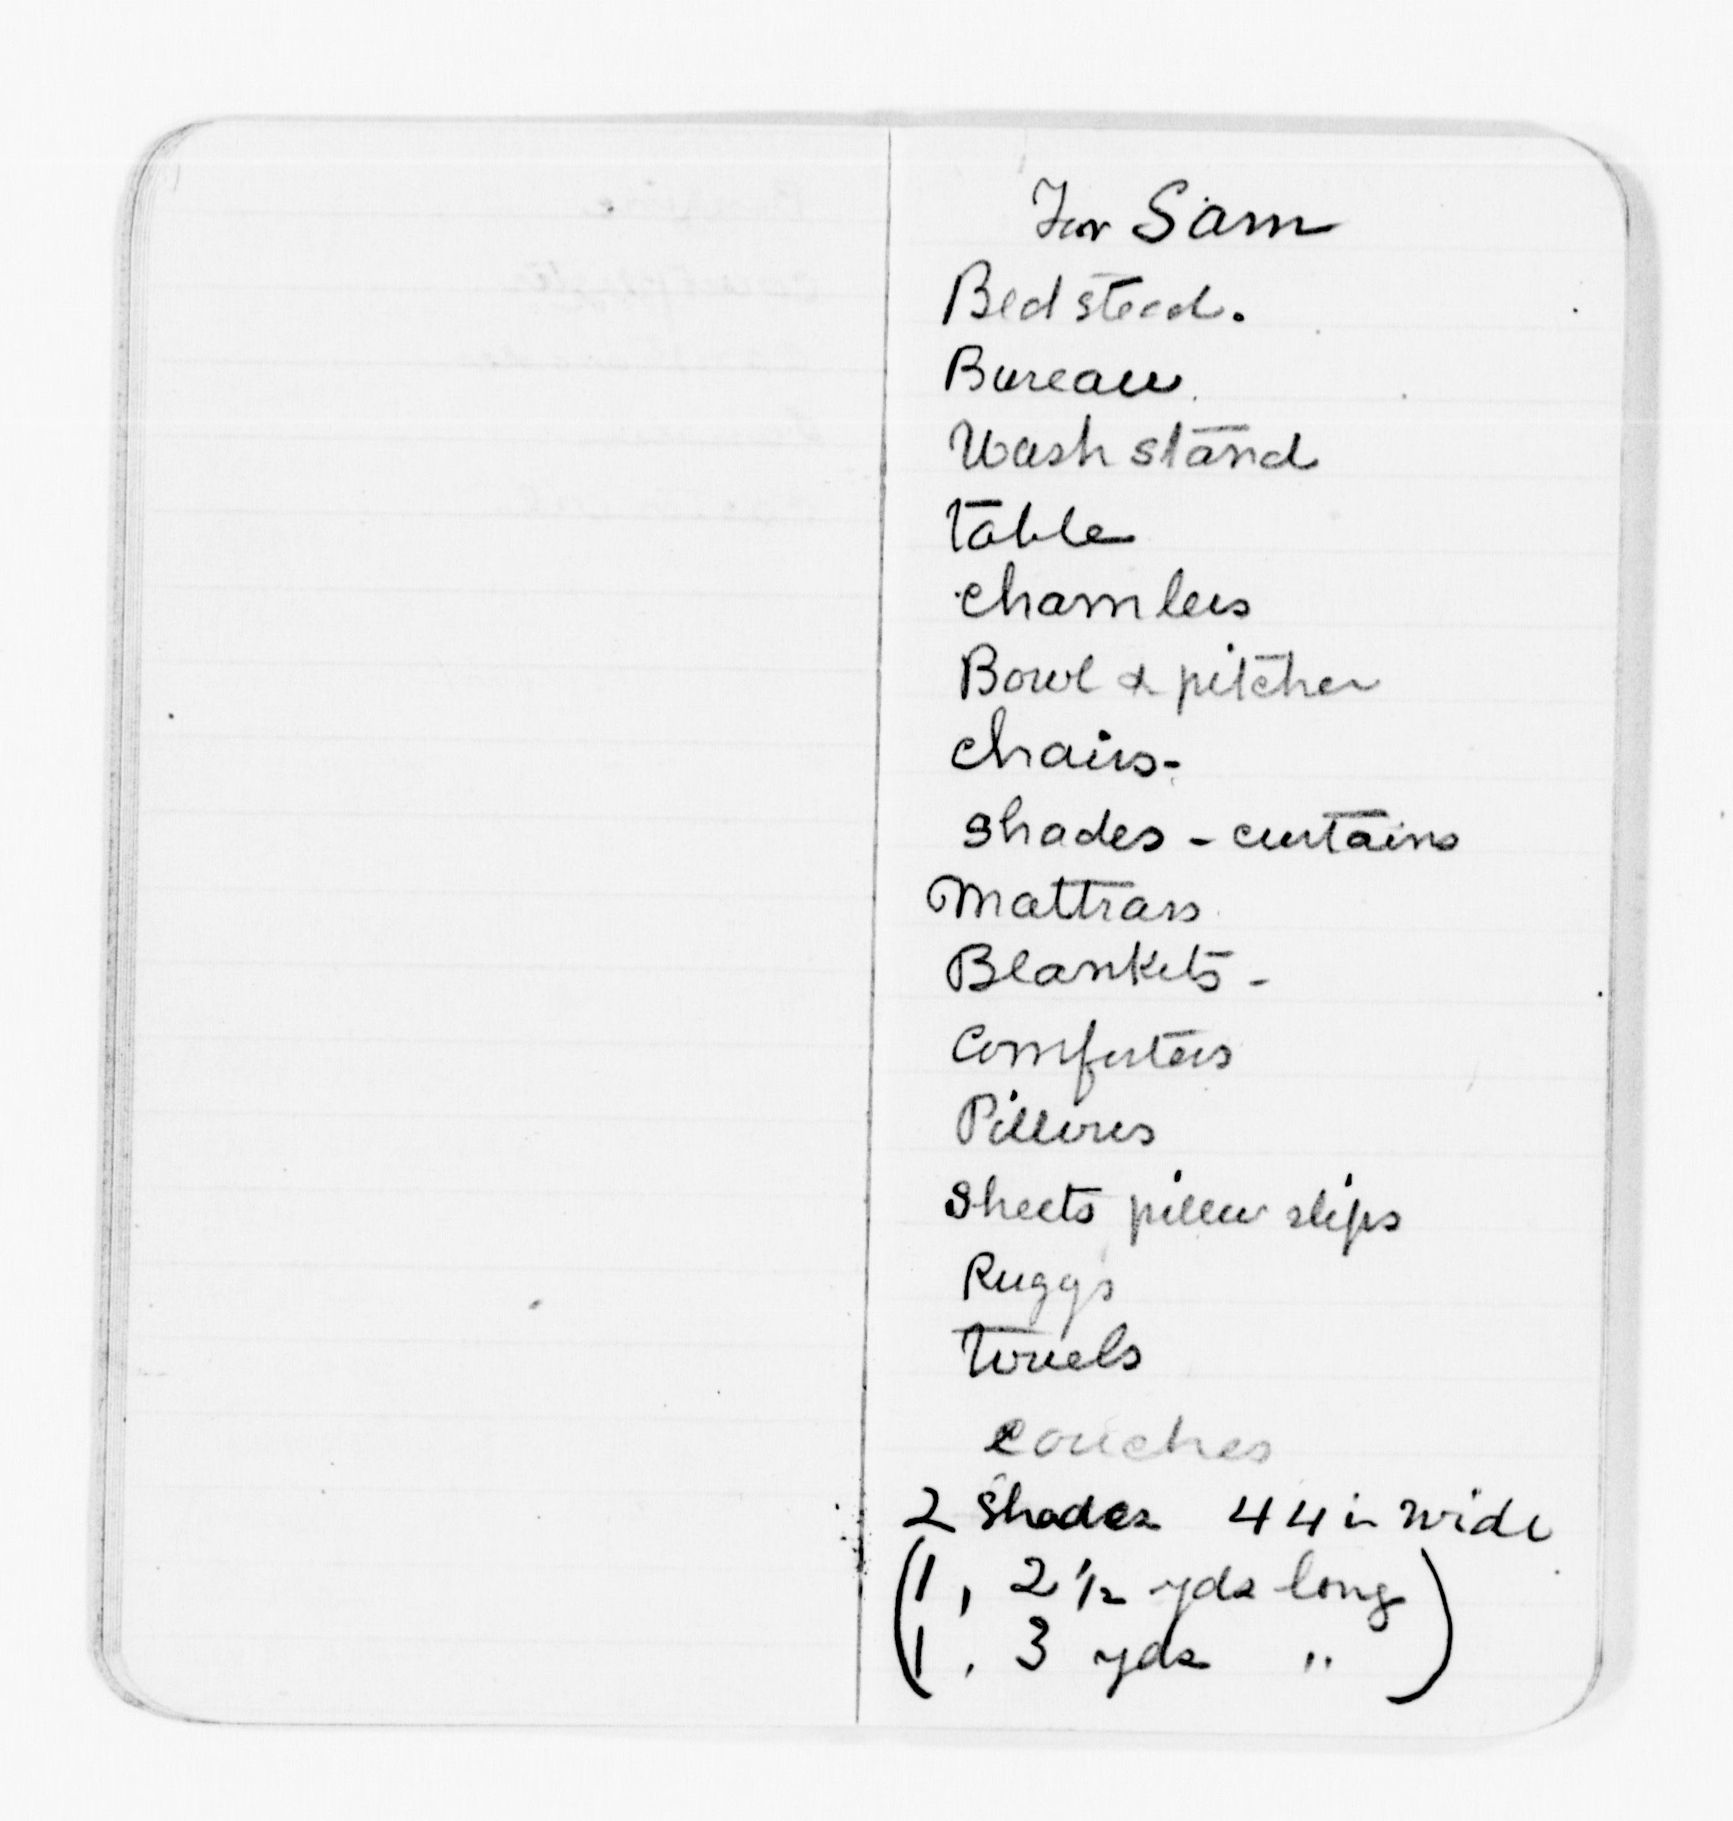 For Sam
Bedstead.
Bureau.
Wash stand
table
chambers
Bowl & pitcher
chairs-
shades - curtains
Mattrass
Blankets -
Comforters
Pillows
Sheets pillow slips
Ruggs
towels
couches
2 Shades 44 in wide
(1, 2 1/2 yds long
1, 3 yds ")